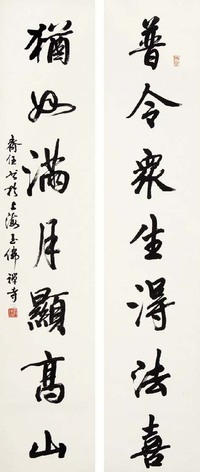 普令眾生得法喜
猶如滿月顯高山
齋任書於上海玉佛禪寺